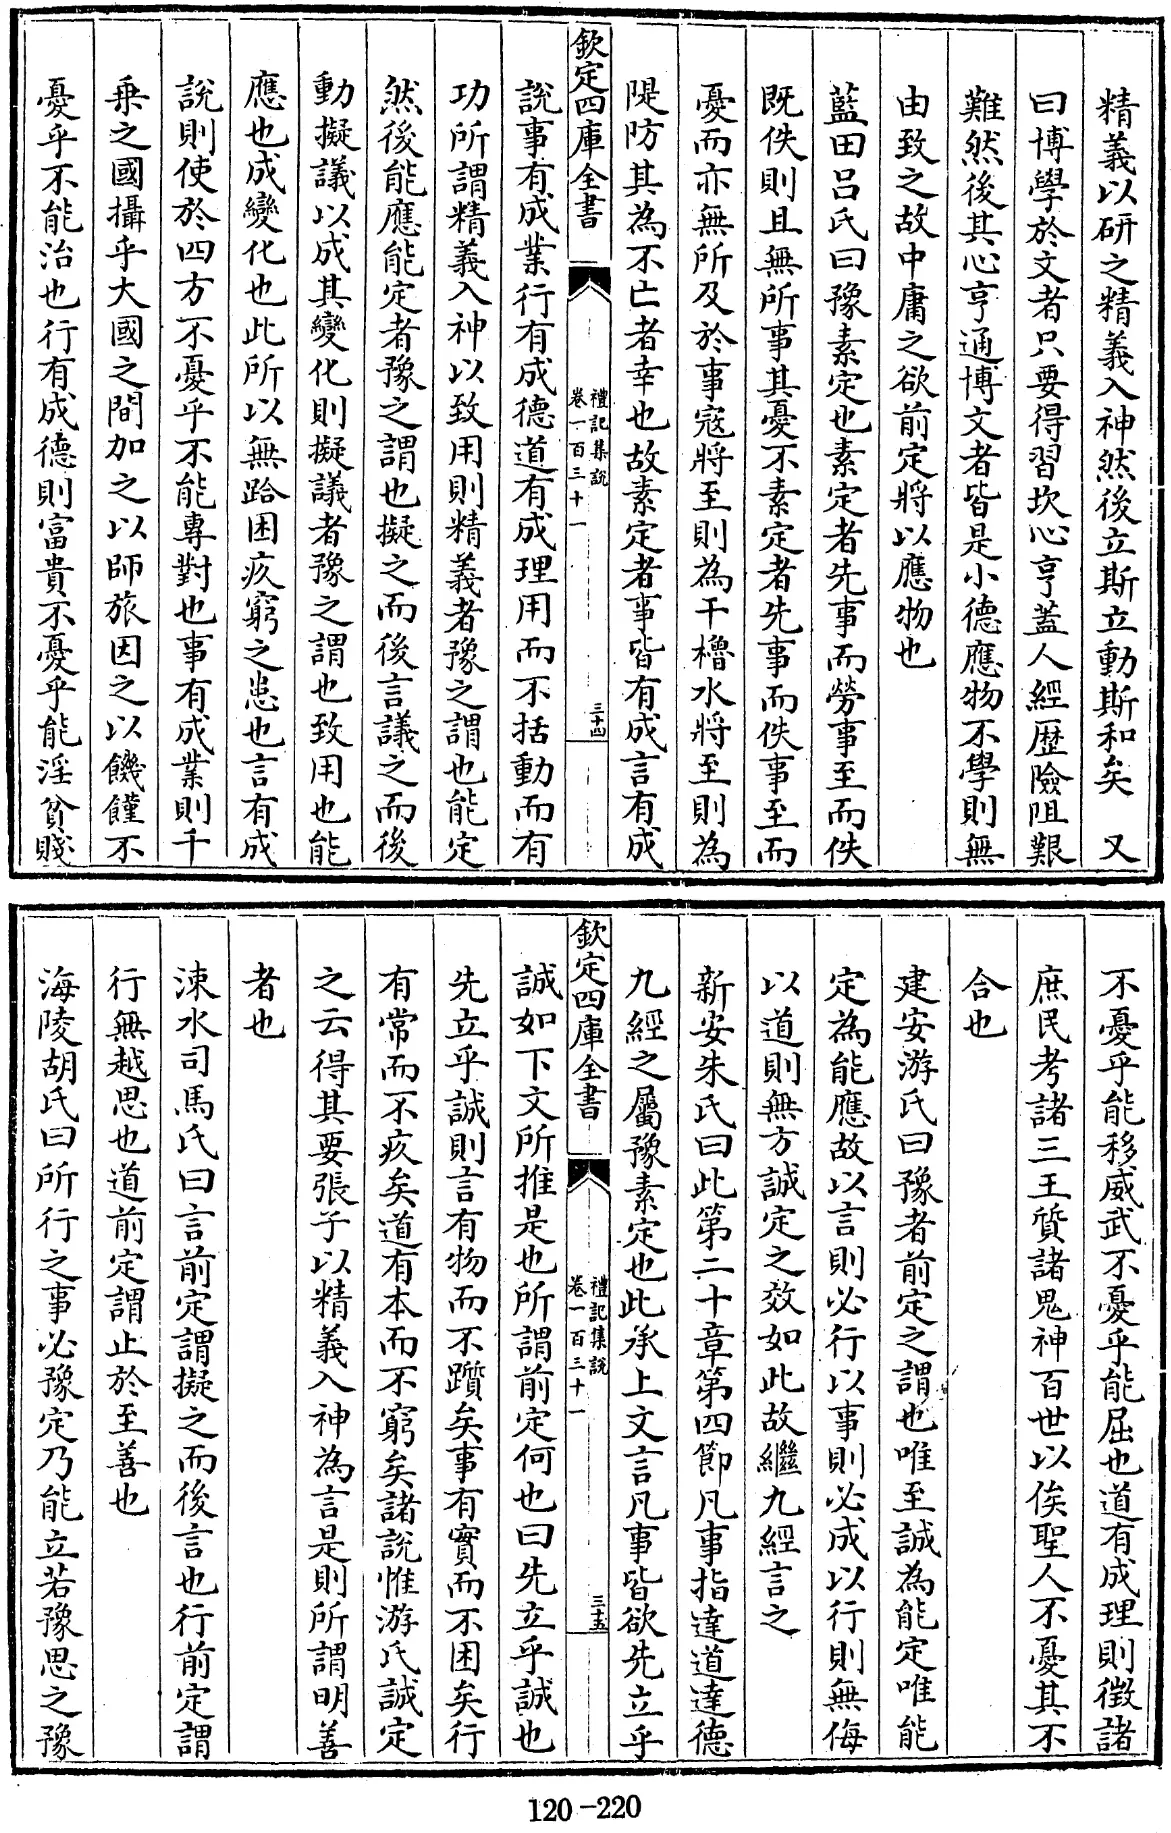 精義以研之精義入神然後立斯立動斯和矣　又
曰博學於文者只要得習坎心亨蓋人經歴險阻艱
難然後其心亨通博文者皆是小德應物不學則無
由致之故中庸之欲前定將以應物也
藍田吕氏曰豫素定也素定者先事而勞事至而佚
既佚則且無所事其憂不素定者先事而佚事至而
憂而亦無所及於事寇將至則為干櫓水將至則為
隄防其為不亡者幸也故素定者事皆有成言有成
欽定四庫全書
禮記集說
卷一百三十一
三十四
說事有成業行有成德道有成理用而不括動而有
功所謂精義入神以致用則精義者豫之謂也能定
然後能應能定者豫之謂也擬之而後言議之而後
動擬議以成其變化則擬議者豫之謂也致用也能
應也成變化也此所以無跲困疚窮之患也言有成
說則使於四方不憂乎不能專對也事有成業則千
乗之國攝乎大國之間加之以師旅因之以饑饉不
憂乎不能治也行有成德則富貴不憂乎能淫貧賤
不憂乎能移威武不憂乎能屈也道有成理則徴諸
庶民考諸三王質諸鬼神百世以俟聖人不憂其不
合也
建安游氏曰豫者前定之謂也唯至誠為能定唯能
定為能應故以言則必行以事則必成以行則無侮
以道則無方誠定之效如此故繼九經言之
新安朱氏曰此第二十章第四節凡事指達道達德
九經之屬豫素定也此承上文言凡事皆欲先立乎
欽定四庫全書
禮記集說
卷一百三十一
三十五
誠如下文所推是也所謂前定何也曰先立乎誠也
先立乎誠則言有物而不躓矣事有實而不困矣行
有常而不疚矣道有本而不窮矣諸說惟游氏誠定
之云得其要張子以精義入神為言是則所謂明善
者也
涑水司馬氏曰言前定謂擬之而後言也行前定謂
行無越思也道前定謂止於至善也
海陵胡氏曰所行之事必豫定乃能立若豫思之豫
120-220